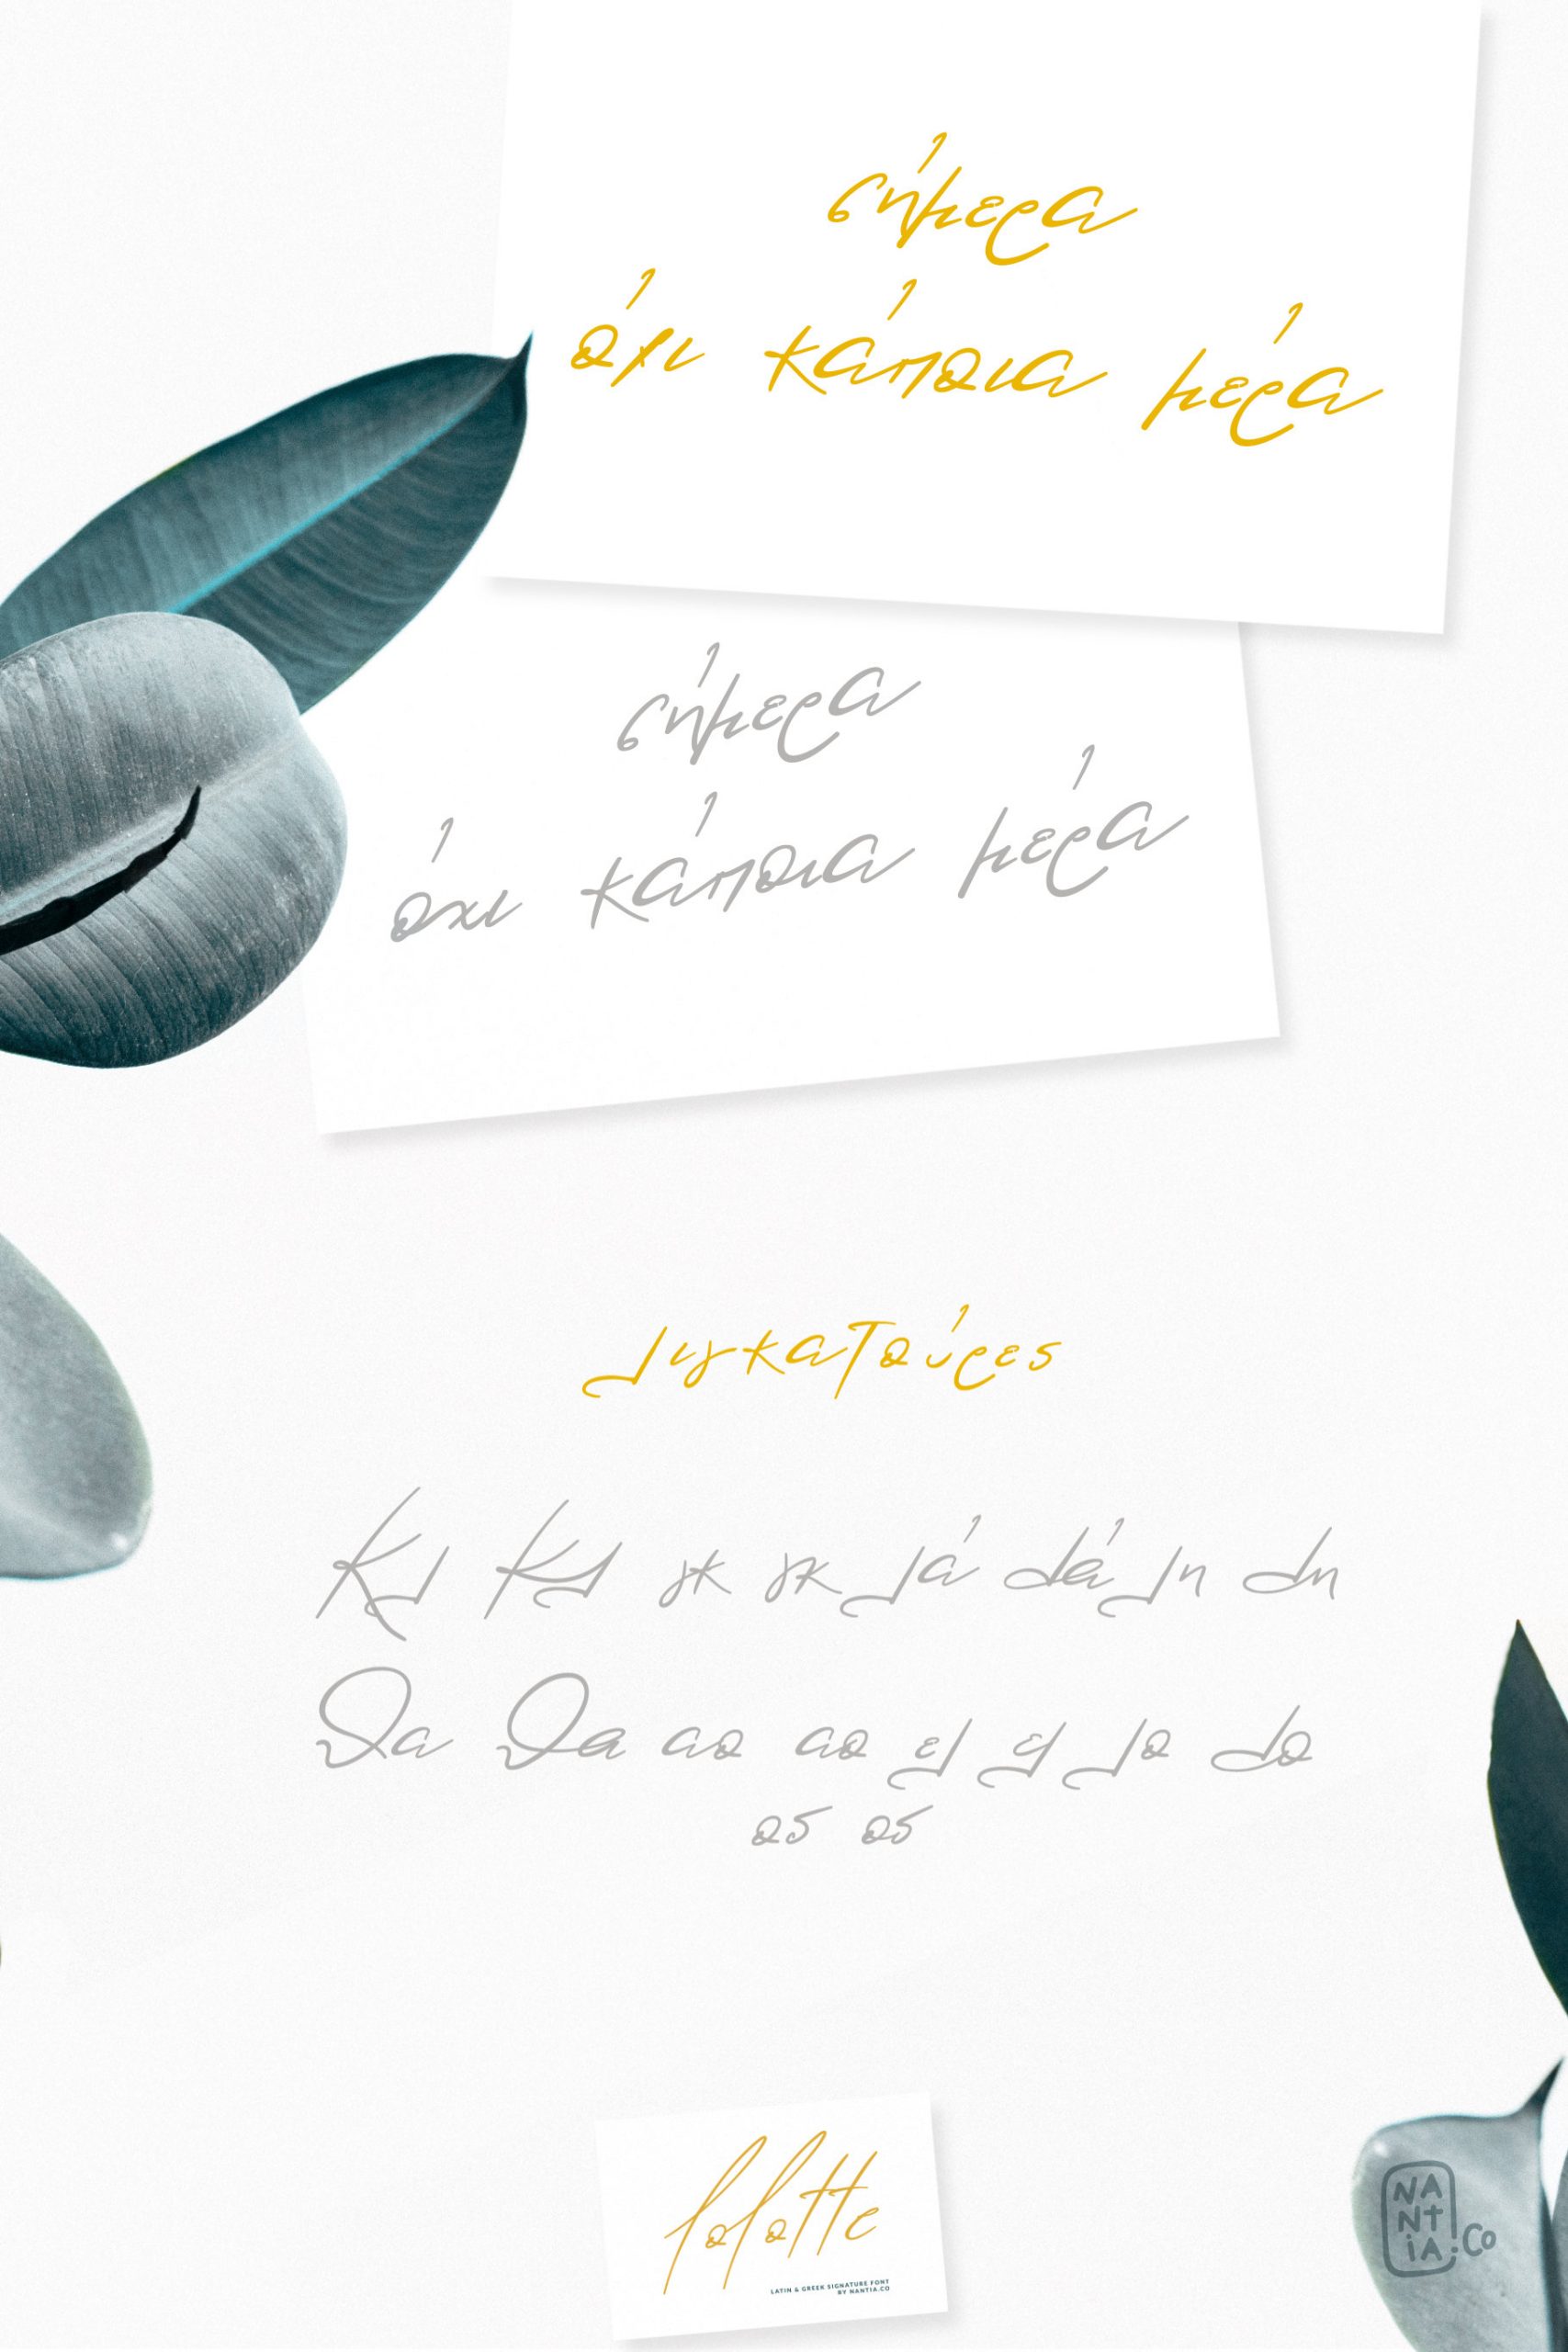 σήμερα
όχι κάποια μέρα
σήμερα
όχι κάποια μέρα
λιγκατούρες
Κλ Κλ γκ γκ λά λά λη λη
Θα Θα αο αο ελ ελ λο λο
οσ οσ
lolotte
LATIN & GREEK SIGNATURE FONT
BY NANTIA.CO
NANTIA.CO